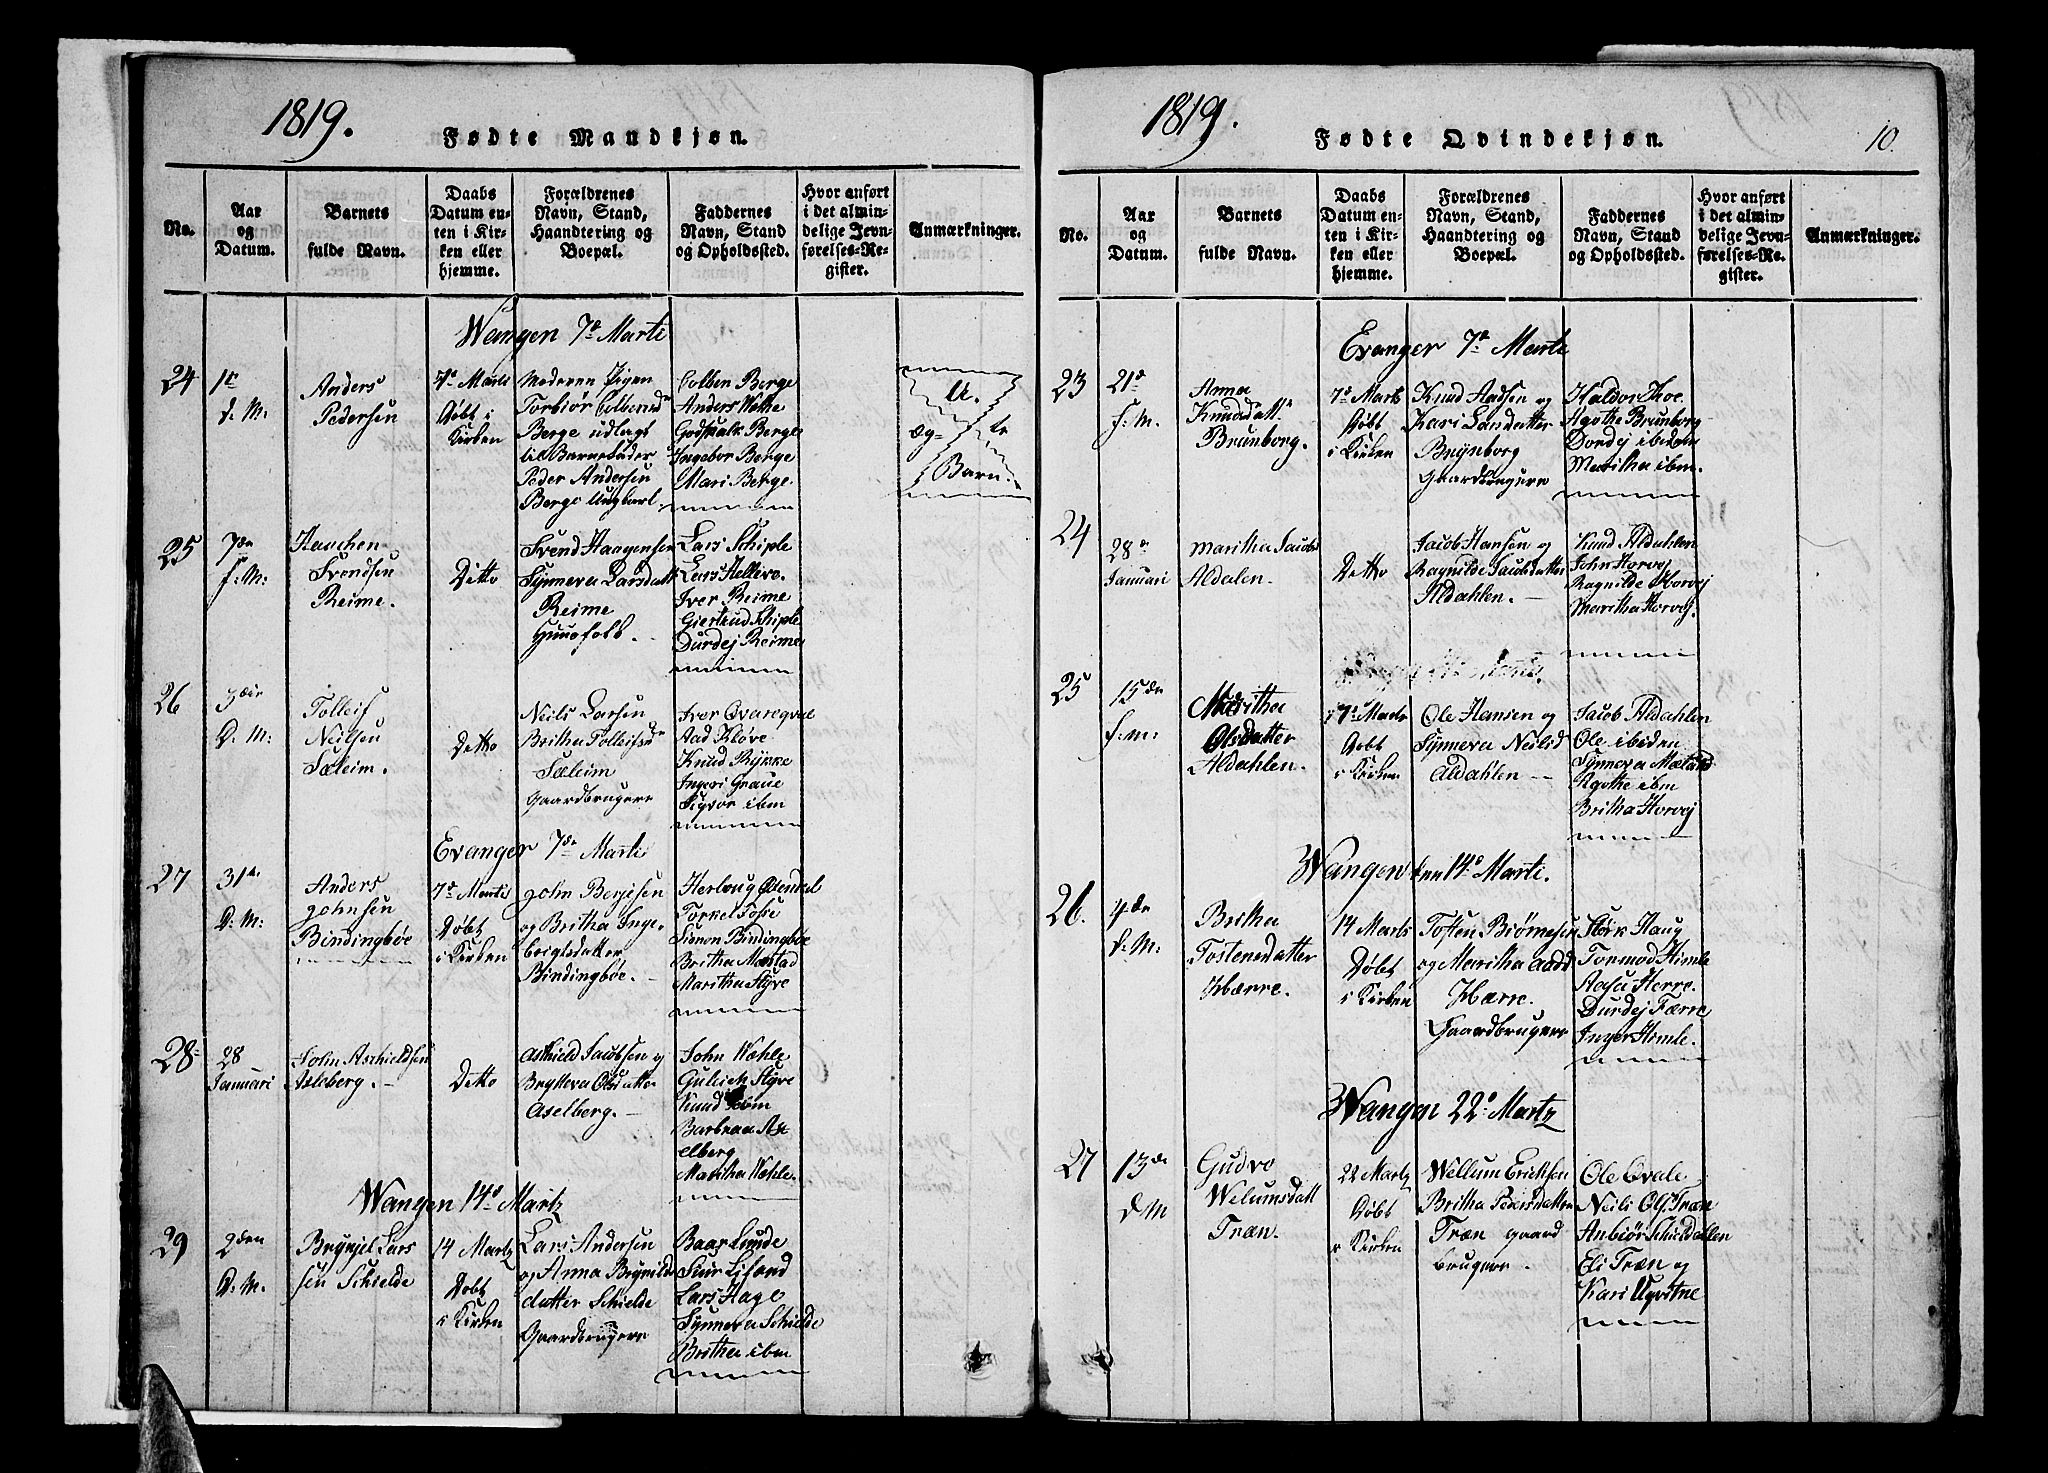 1819.
Fødte Mandkjøn.
No.
Aar
og
Datum.
Barnets
fulde Navn.
Daabs
Datum en-
ten i Kir-
ken eller
hjemme.
Forældrenes
Navn, Stand,
Haandtering og
Boepæl.
Faddernes
Navn, Stand
og Opholdssted.
Hvor anført
i det almin-
delige Jevn-
førelses-Re-
gister.
Anmærkninger.
Wangen 7de Marti
24
1te
d: M:
Anders
Pedersen
7de Marti
døbt i
Kirken
Moderen Pigen
Torbiør Colbensd
Berge udlagt
til Barnefader
Peder Andersen
Berge Ungkarl
Colben Berge
Anders Wethe
Godskalk Berge
Ingebor Berge
Mari Berge
U-
æg-te
Barn.
25
7de
f: M:
Haachen
Svendsen
Reime.
Ditto
Svend Haagensen
Synneva Larsdatt
Reime
Huusfolk.
Lars Schiple
Lars Hellevo.
Iver Reime
Giertrud Schiple
Durdej Reime
26
3die
D: M:
Tolleif
Neilsen
Sæleim.
Ditto
Neils Larsen
Britha Tolleifsd
Sæleim
Gaardbrugere
Iver Qvareqval
Aad Kløve
Knud Rykke
Ingeri Graue
Sigvor ibm
Evanger 7de Marti
27
31te
D: M:
Anders
Johnsen
Bindingbøe
7de Martii
Døbt
i Kirken
John Berjesen
og Britha Inge-
brigtsdatter
Bindingbøe.
Herlaug
Torkel Fosse
Simon Bindingbøe
Britha Mæstad
Maritha Styve
28
28
Januari
John Aschieldsen
Asleberg.
Ditto
Askield Jacobsen og
Brytteva Olsdatter
Aselberg.
John Wæhle
Gulleich Styve
Knud ibm
Barbraa As-
elberg
Maritha Wæhle.
Wangen 14de Martz
29
2den
D: M.
Brynjel Lars
sen Schielde
14 Martz
Døbt
i Kirken
Lars Andersen
og Anna Brynilds
datter Schielde
Gaardbrugere
Baar Lunde
Siur Lisand
Lars Hage
Synneva Schielde
Britha ibm
1819.
Fødte Qvindekjøn.
10.
No.
Aar
og
Datum.
Barnets
fulde Navn.
Daabs
Datum en-
ten i Kir-
ken eller
hjemme.
Forældrenes
Navn, Stand,
Haandtering og
Boepæl.
Faddernes
Navn, Stand
og Opholdssted.
Hvor anført
i det almin-
delige Jevn-
førelses-Re-
gister.
Anmærkninger.
Evanger 7de Marti
23
21de
f: M.
Anna
Knudsdatt
Brunborg.
7de Marts
Døbt
i Kirken
Knud Aadsen og
Kari Larsdatter
Brynborg
Gaardbrugere
Haldor Hoe.
Agathe Brunborg
Dordej ibiden
Maritha ibm.
24
28de
Januari
Maritha Jacobs
Aldalen.
Ditto
Jacob Hansen og
Ragnilde Jacobsdatter
Aldahlen.
Knud Aldahlen
John Horvej
Ragnilde Horvej
Maritha Horvej.
25
15de
f: m:
Maritha
Olsdatter
Aldahlen.
7de Marts
Døbt
i Kirken
Ole Hansen og
Synneva Neilsd
Aldahlen
Jacob Aldahlen
Ole ibiden
Synneva Mæstad
Agathe ibm
Britha Horvej
Wangen den 14de Marti.
26.
4de
D: M:
Britha
Tostensdatter
Hærre.
14 Marts
Døbt
i Kirken
Tosten Biørnesen
og Maritha Aadsd
Hærre.
Gaardbrugere
Størk Haug
Tormod Himle
Aasa Herre.
Durdej Færre
Inger Himle.
Wangen 22de Martz
27
13de
D M
Gudvo
Welumsdatt
Træn.
22 Martz
Døbt
i Kirken
Wellum Ericksen
Britha Pedersdatter
Træn gaard
brugere.
Ole Qvale
Neils Ols. Træn
Anbiør Schieldahlen
Eli Træn og
Kari Ugvitne